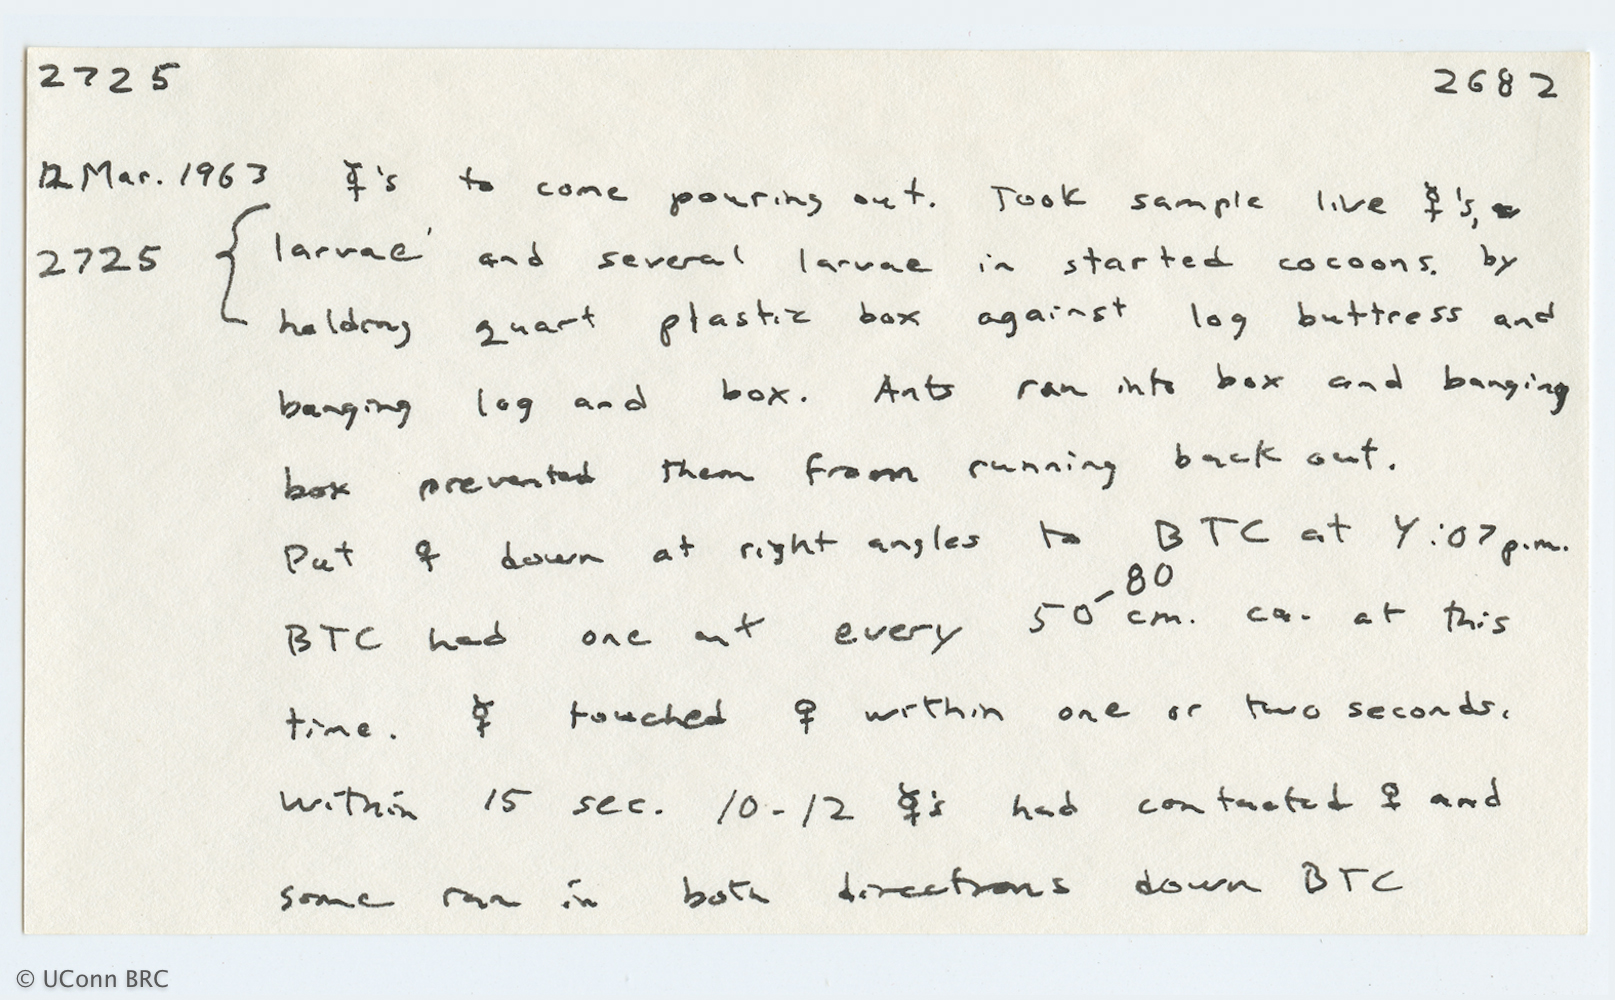 2725 2682
12 Mar. 1963 ☿'s to come pouring out. Took sample live ☿'s,
2725 { larvae and several larvae in started cocoons. by
holding quart plastic box against log buttress and
banging log and box. Ants ran into box and banging
box prevented them from running back out.
Put ♀ down at right angles to BTC at 4:07 p.m.
BTC had one ant every 50-80 cm. ca. at this
time. ☿ touched ♀ within one or two seconds.
Within 15 sec. 10-12 ☿'s had contacted ♀ and
some ran in both directions down BTC
© UConn BRC